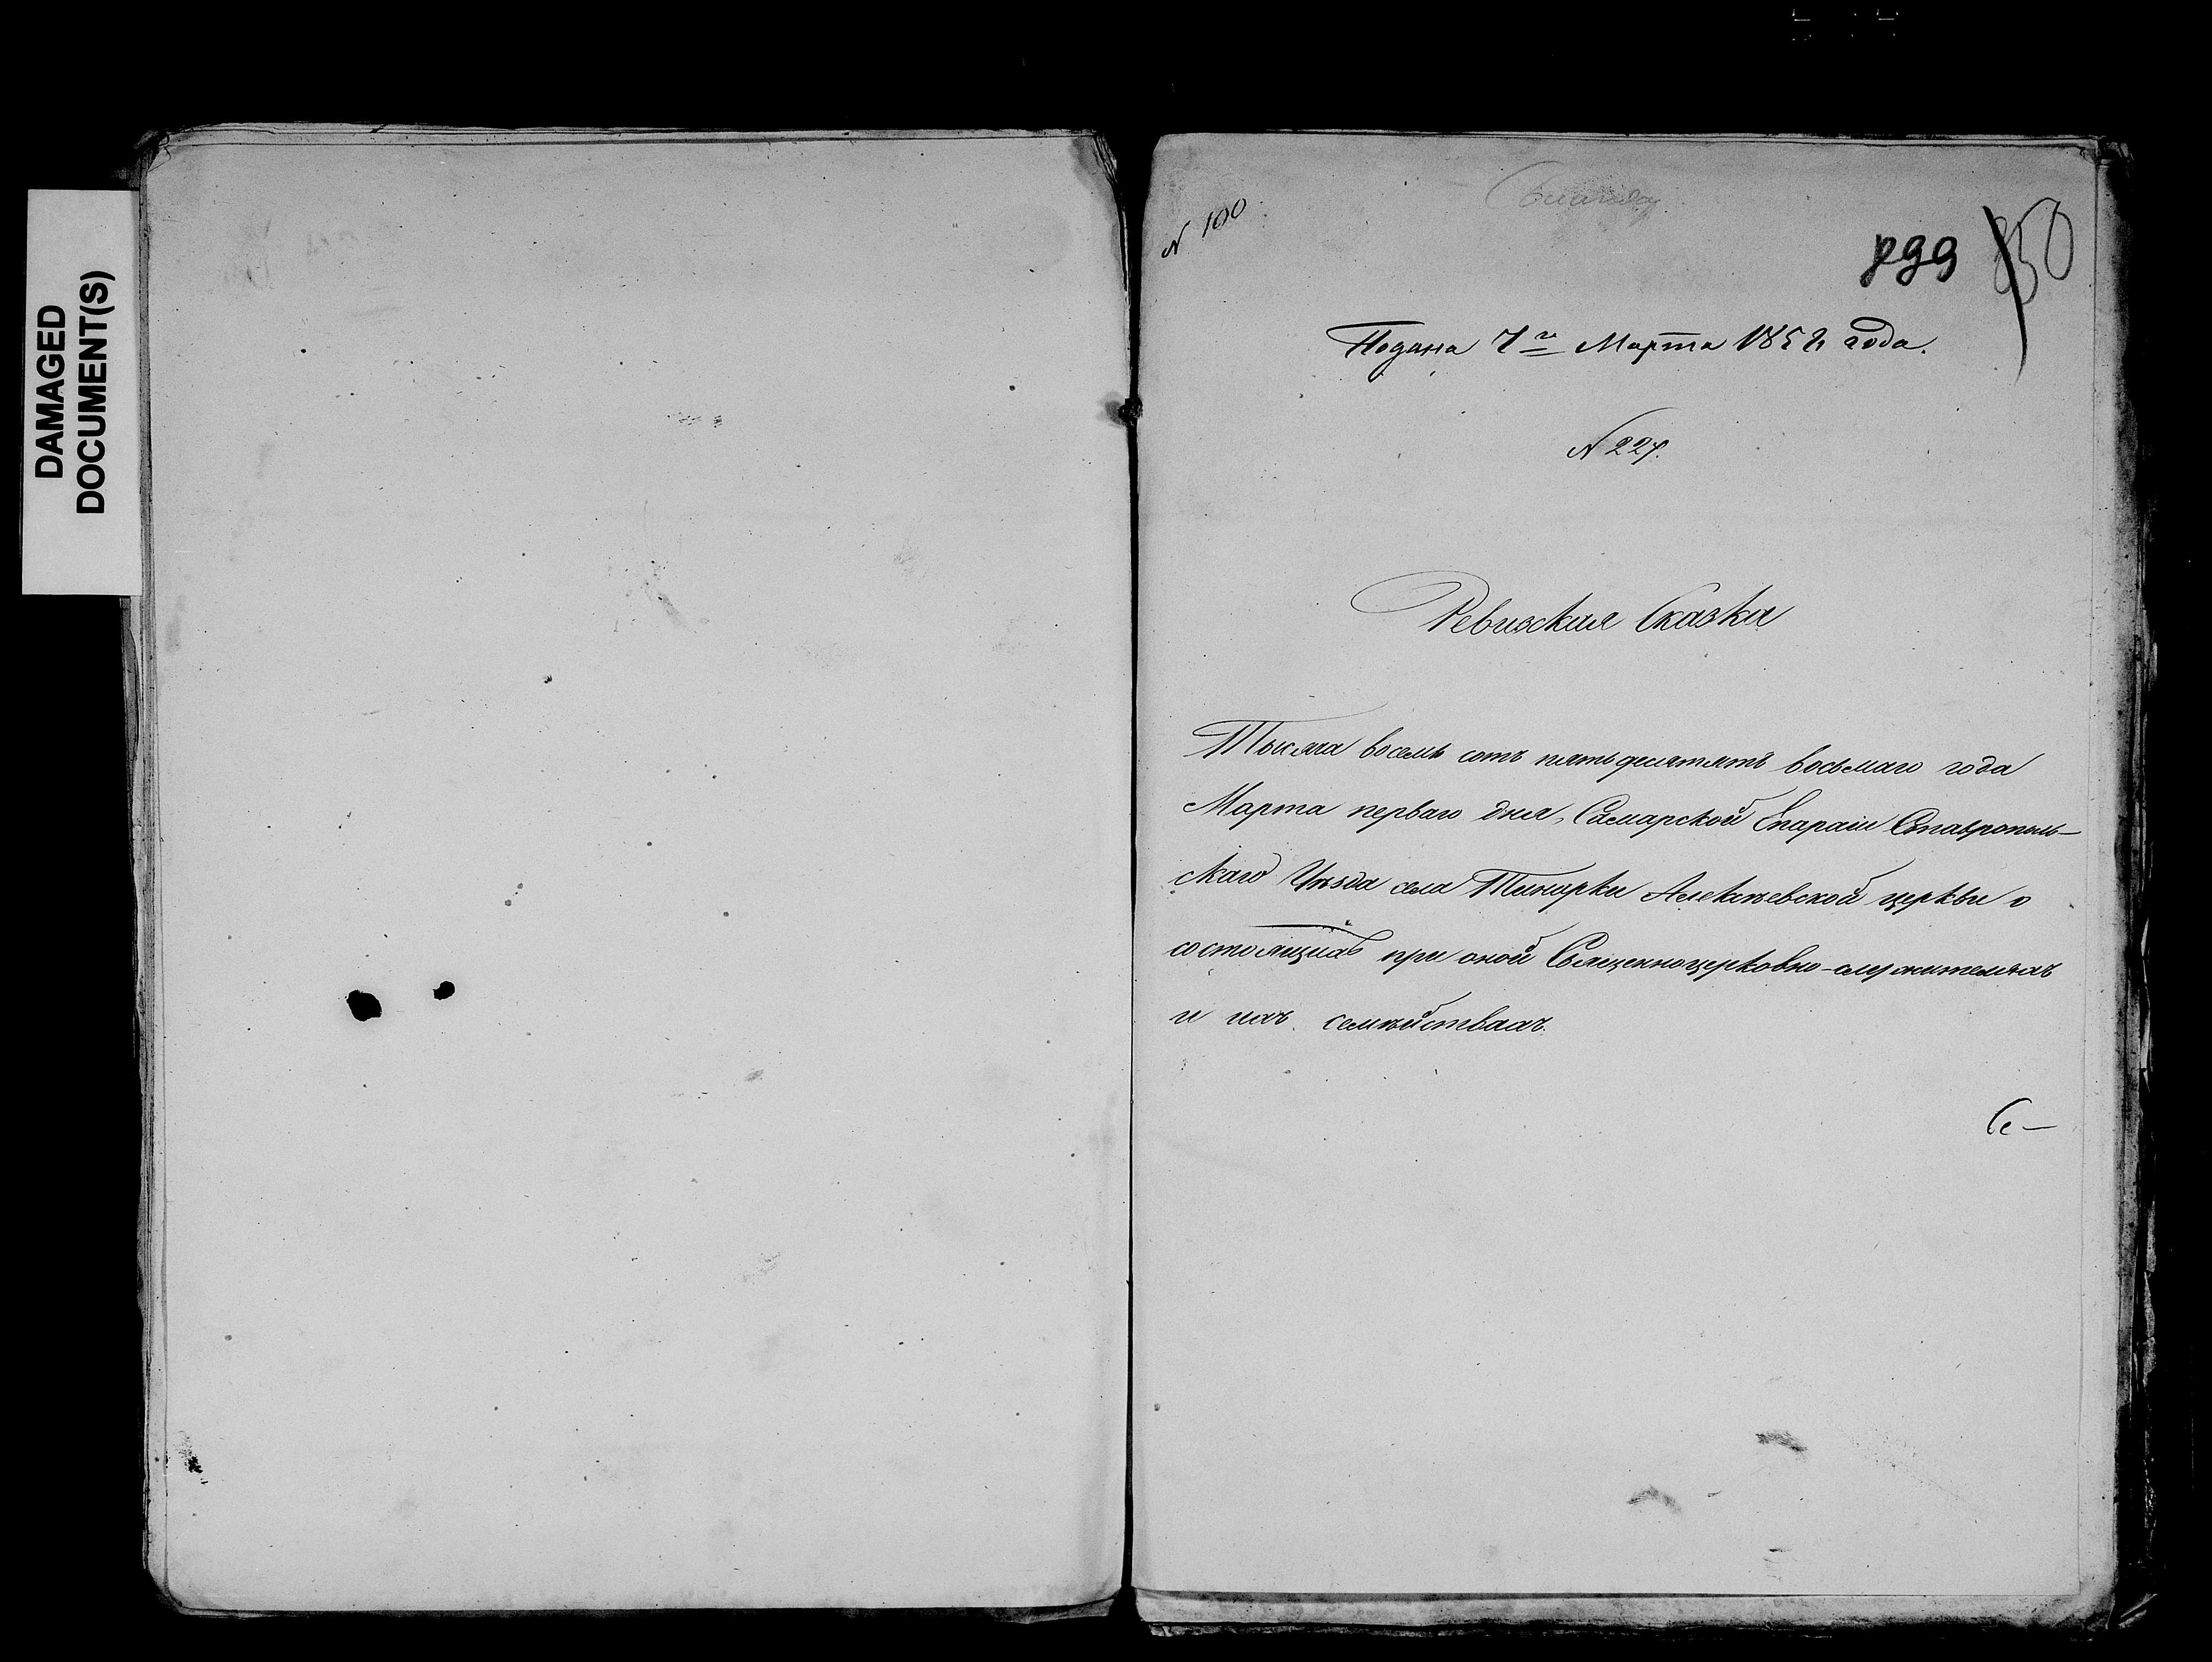 DAMAGED
DOCUMENT(S)
N 100
899 850
Подана 7го Марта 1858 года.
N 227.
Ревизская Сказка
Тысяча восемь сотъ пятьдесятятъ восьмаго года
Марта перваго дня, Самарской Епархіи Ставрополь-
скаго Уѣзда села Алексѣевской церкви о
состоящихъ при оной Священноцерковно-служителяхъ
и ихъ семѣйствахъ.
Се-